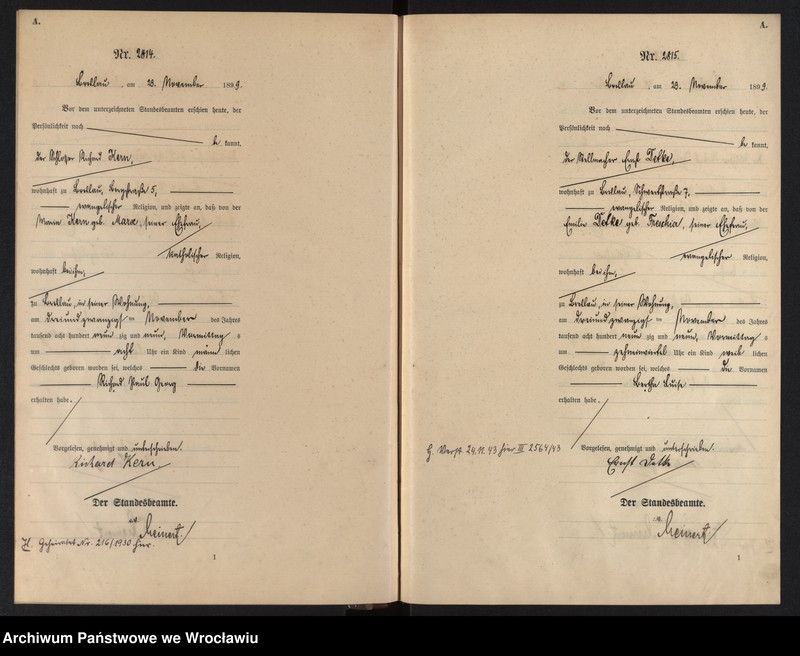 A.
Nr. 2814.
Breslau, am 23. November 1899.
Vor dem unterzeichneten Standesbeamten erschien heute, der
Persönlichkeit nach
be kannt,
der Schlosser Richard Kern,
wohnhaft zu Breslau, Bergstraße 5,
evangelischer Religion, und zeigte an, daß von der
Maria Kern geb. Marx, seiner Ehefrau,
katholischer Religion,
wohnhaft bei ihm,
zu Breslau, in seiner Wohnung,
am dreiundzwanzigsten November des Jahres
tausend acht hundert neun zig und neun, Vormittags
um acht Uhr ein Kind männlichen
Geschlechts geboren worden sei, welches die Vornamen
Richard Paul Georg
erhalten habe.
Vorgelesen, genehmigt und unterschrieben.
Richard Kern
Der Standesbeamte.
Meinert
H. Geheiratet Nr. 216/1930 hier.
1
A.
Nr. 2815.
Breslau, am 23. November 1899.
Vor dem unterzeichneten Standesbeamten erschien heute, der
Persönlichkeit nach
be kannt,
der Stellmacher Ernst Detke,
wohnhaft zu Breslau, Schwertstraße 7,
evangelischer Religion, und zeigte an, daß von der
Emilie Detke geb. seiner Ehefrau,
evangelischer Religion,
wohnhaft bei ihm,
zu Breslau, in seiner Wohnung,
am dreiundzwanzigsten November des Jahres
tausend acht hundert neun zig und neun, Vormittags
um Uhr ein Kind weiblichen
Geschlechts geboren worden sei, welches die Vornamen
Bertha Luise
erhalten habe.
Vorgelesen, genehmigt und unterschrieben.
Ernst Detke
Der Standesbeamte.
Meinert
24.11.43 hier III 2564/43
1
Archiwum Państwowe we Wrocławiu